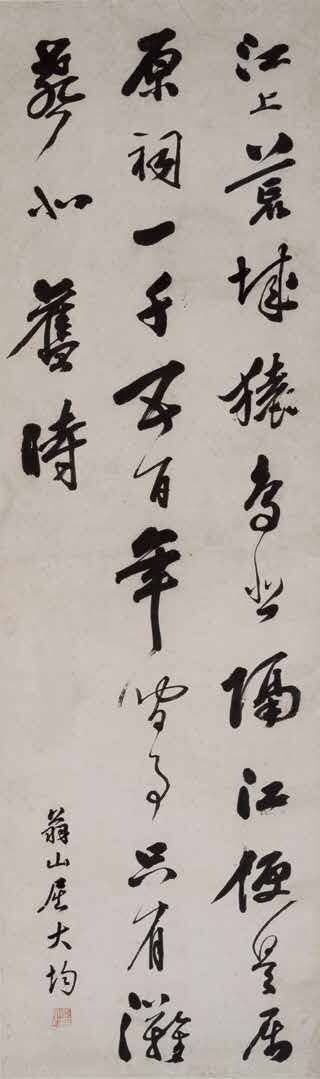 江上荒城猿鳥悲隔江便是屈
原祠一千五百年間事只有灘
聲似舊時
翁山屈大均